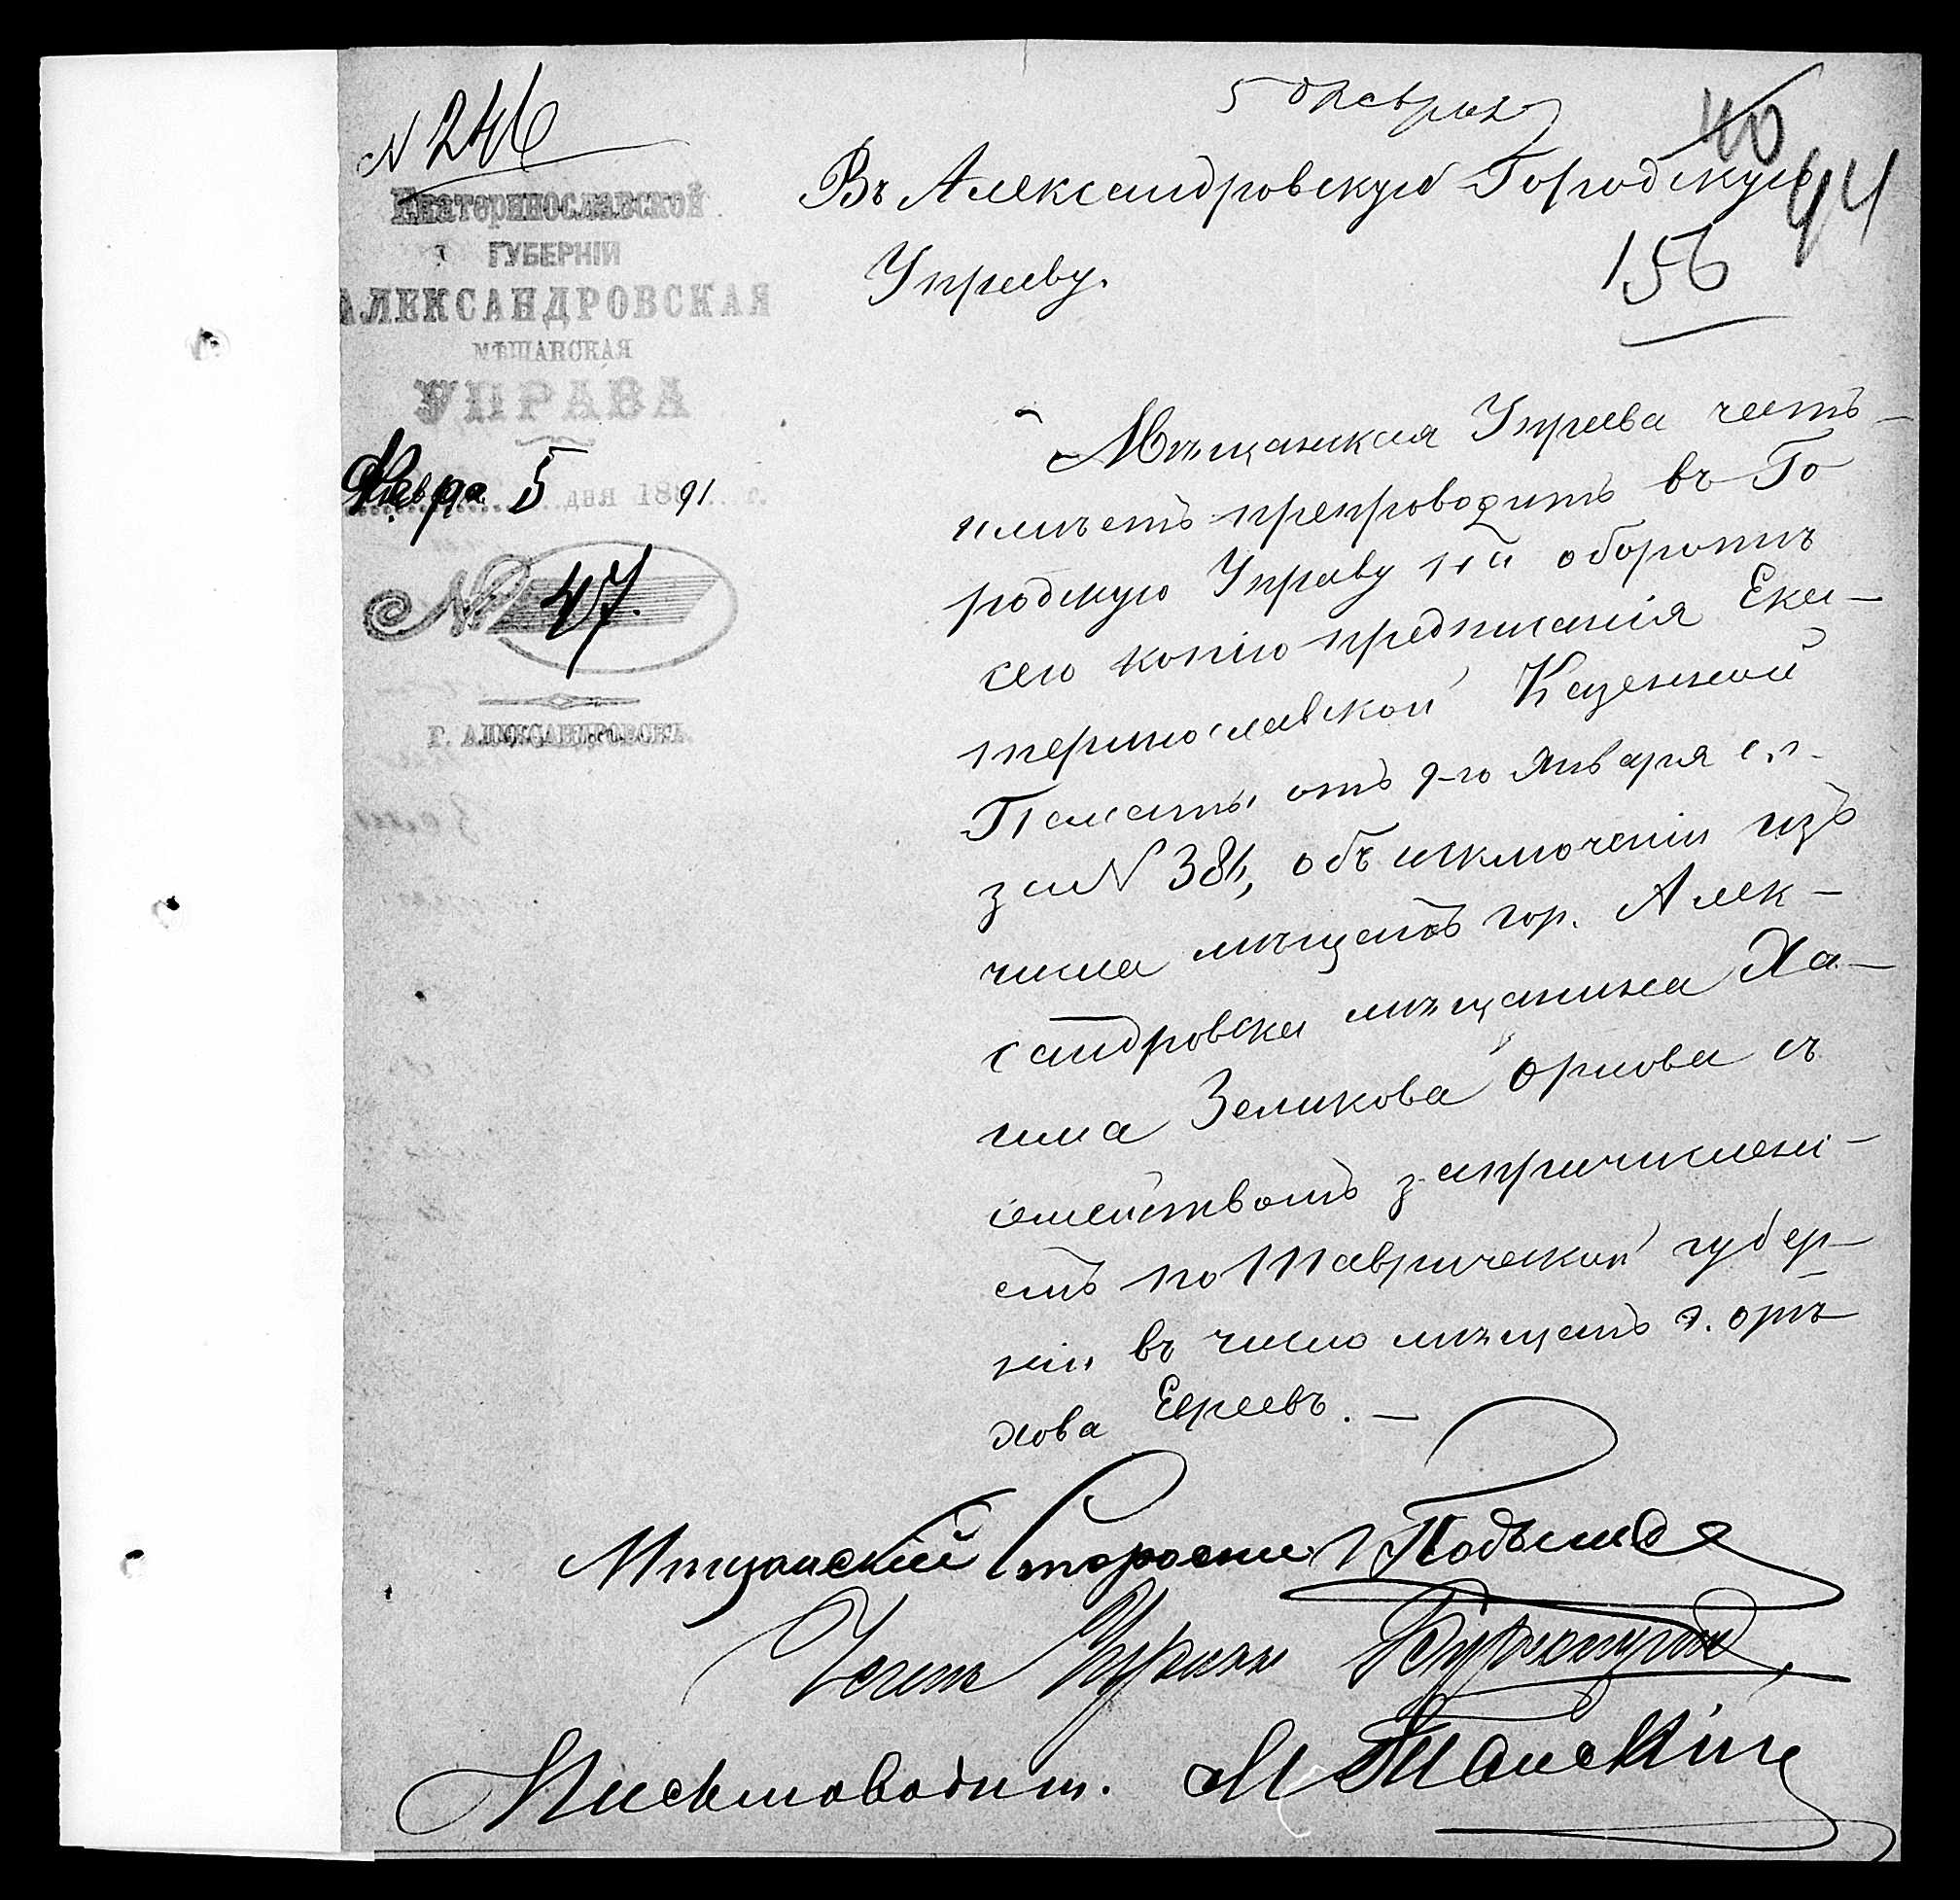 N 246
5 Февраля
40
Въ Александровскую Городскую
44
Управу.
156
Екатеринославской
ГУБЕРНІИ
АЛЕКСАНДРОВСКАЯ
МѢЩАНСКАЯ
УПРАВА
Февра 5 дня 1891 г.
№ 47.
Г. АЛЕКСАНДРОВСКЪ.
Мѣщанская Управа честь
имѣетъ препроводить въ Го
родскую Управу на оборотѣ
сего копію предписанія Ека-
теринославской Казенной
Палаты отъ 9-го Января с.г.
за N 384, объ исключеніи изъ
числа мѣщанъ гор. Алек-
сандровска мѣщанина Ха-
има Зеликова Орлова съ
семействомъ за причислені-
емъ по Таврической губер-
ніи въ число мѣщанъ г. Орѣ-
хова Евреевъ. —
Мѣщанскій Староста
Членъ Управы
Письмоводит.